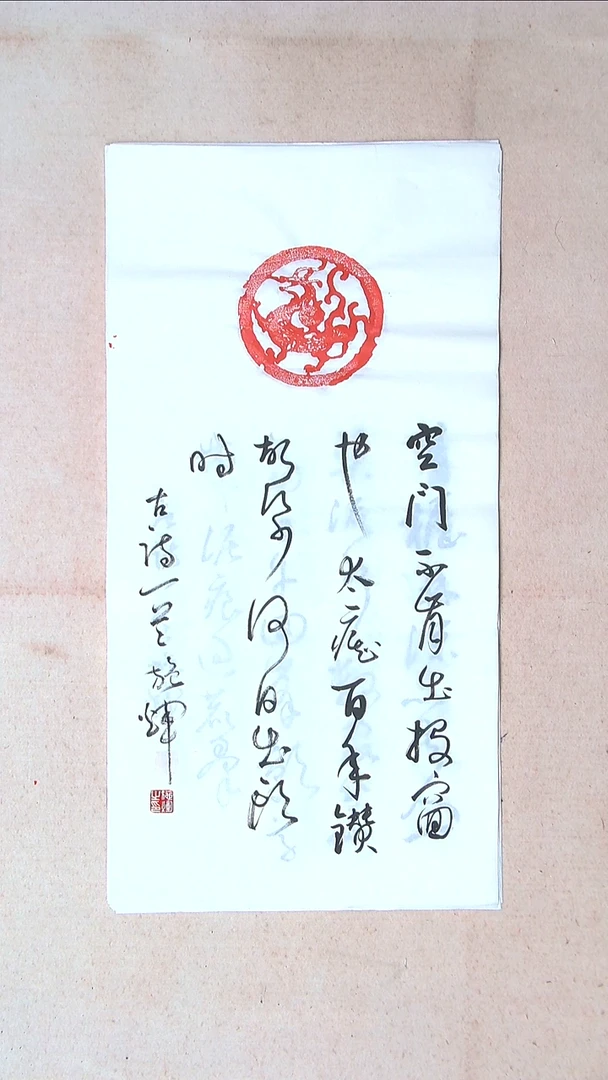 空门不肯出投窗
也太痴百年鑚
故纸何日出头
时
古诗一首施輝